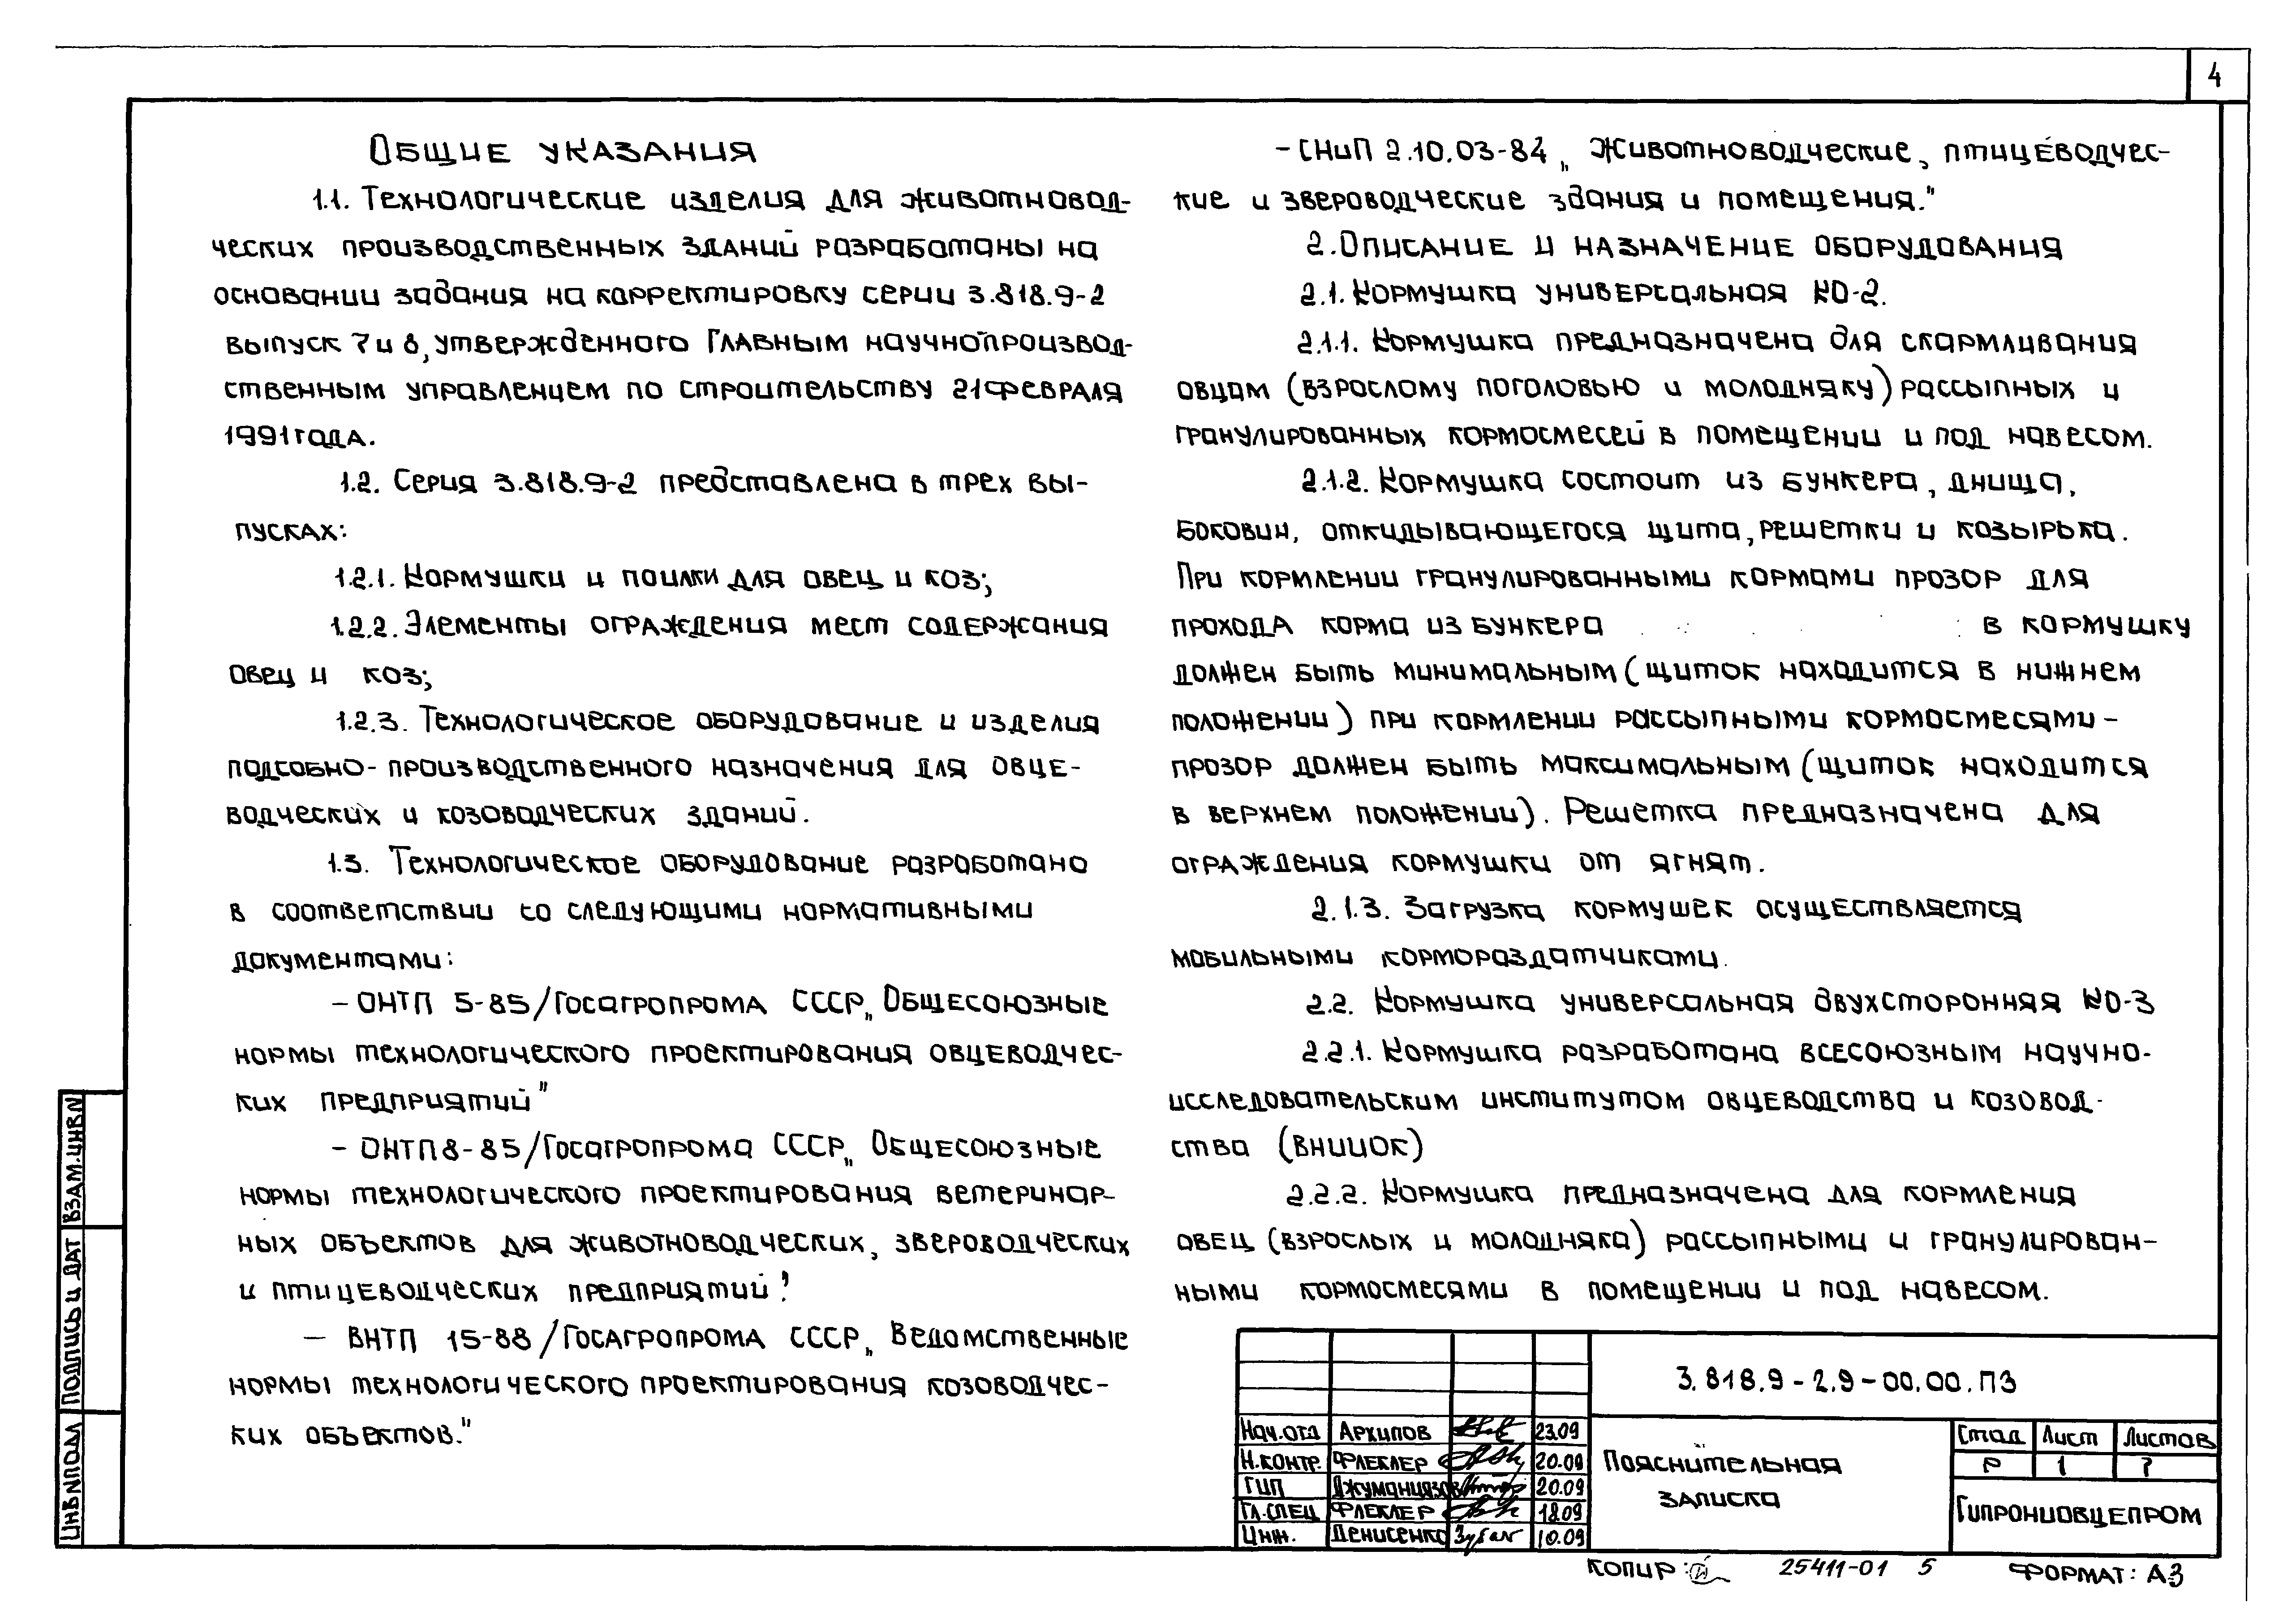 4
Общие указания
1.1. Технологические изделия для животновод-
ческих производственных зданий разработаны на
основании задания на корректировку серии 3.818.9-2
выпуск 7 и 8, утвержденного Главным научнопроизвод-
ственным управленцем по строительству 21 февраля
1991 года.
1.2. Серия 3.818.9-2 представлена в трех вы-
пусках:
1.2.1. Кормушки и поилки для овец и коз;
1.2.2. Элементы ограждения мест содержания
овец и коз;
1.2.3. Технологическое оборудование и изделия
подсобно-производственного назначения для овце-
водческих и козоводческих зданий.
1.3. Технологическое оборудование разработано
в соответствии со следующими нормативными
документами:
– ОНТП 5-85/Госагропрома СССР „Общесоюзные
нормы технологического проектирования овцеводчес-
ких предприятий"
– ОНТП 8-85/Госагропрома СССР „Общесоюзные
нормы технологического проектирования ветеринар-
ных объектов для животноводческих, звероводческих
и птицеводческих предприятий"
– ВНТП 15-88/Госагропрома СССР „Ведомственные
нормы технологического проектирования козоводчес-
ких объектов."
– СНиП 2.10.03-84 „Животноводческие, птицеводчес-
кие и звероводческие здания и помещения."
2. Описание и назначение оборудования
2.1. Кормушка универсальная КО-2.
2.1.1. Кормушка предназначена для скармливания
овцам (взрослому поголовью и молодняку) рассыпных и
гранулированных кормосмесей в помещении и под навесом.
2.1.2. Кормушка состоит из бункера, днища,
боковин, откидывающегося щита, решетки и козырька.
При кормлении гранулированными кормами прозор для
прохода корма из бункера в кормушку
должен быть минимальным (щиток находится в нижнем
положении) при кормлении рассыпными кормосмесями –
прозор должен быть максимальным (щиток находится
в верхнем положении). Решетка предназначена для
ограждения кормушки от ягнят.
2.1.3. Загрузка кормушек осуществляется
мобильными кормораздатчиками.
2.2. Кормушка универсальная двухсторонняя КО-3
2.2.1. Кормушка разработана всесоюзным научно-
исследовательским институтом овцеводства и козовод-
ства (ВНИИОК)
2.2.2. Кормушка предназначена для кормления
овец (взрослых и молодняка) рассыпными и гранулирован-
ными кормосмесями в помещении и под навесом.
3.818.9-2.9-00.00.ПЗ
Нач.отд Архипов 23.09
Н.контр. Флеклер 20.09
ГИП Джуманиязов 20.09
Гл.спец Флеклер 18.09
Инж. Денисенко 10.09
Пояснительная
записка
Стад Лист Листов
Р 1 7
Гипрониовцепром
Инв№подл Подпись и дат Взам.инв№
Копир: 25411-01 5 Формат: А3